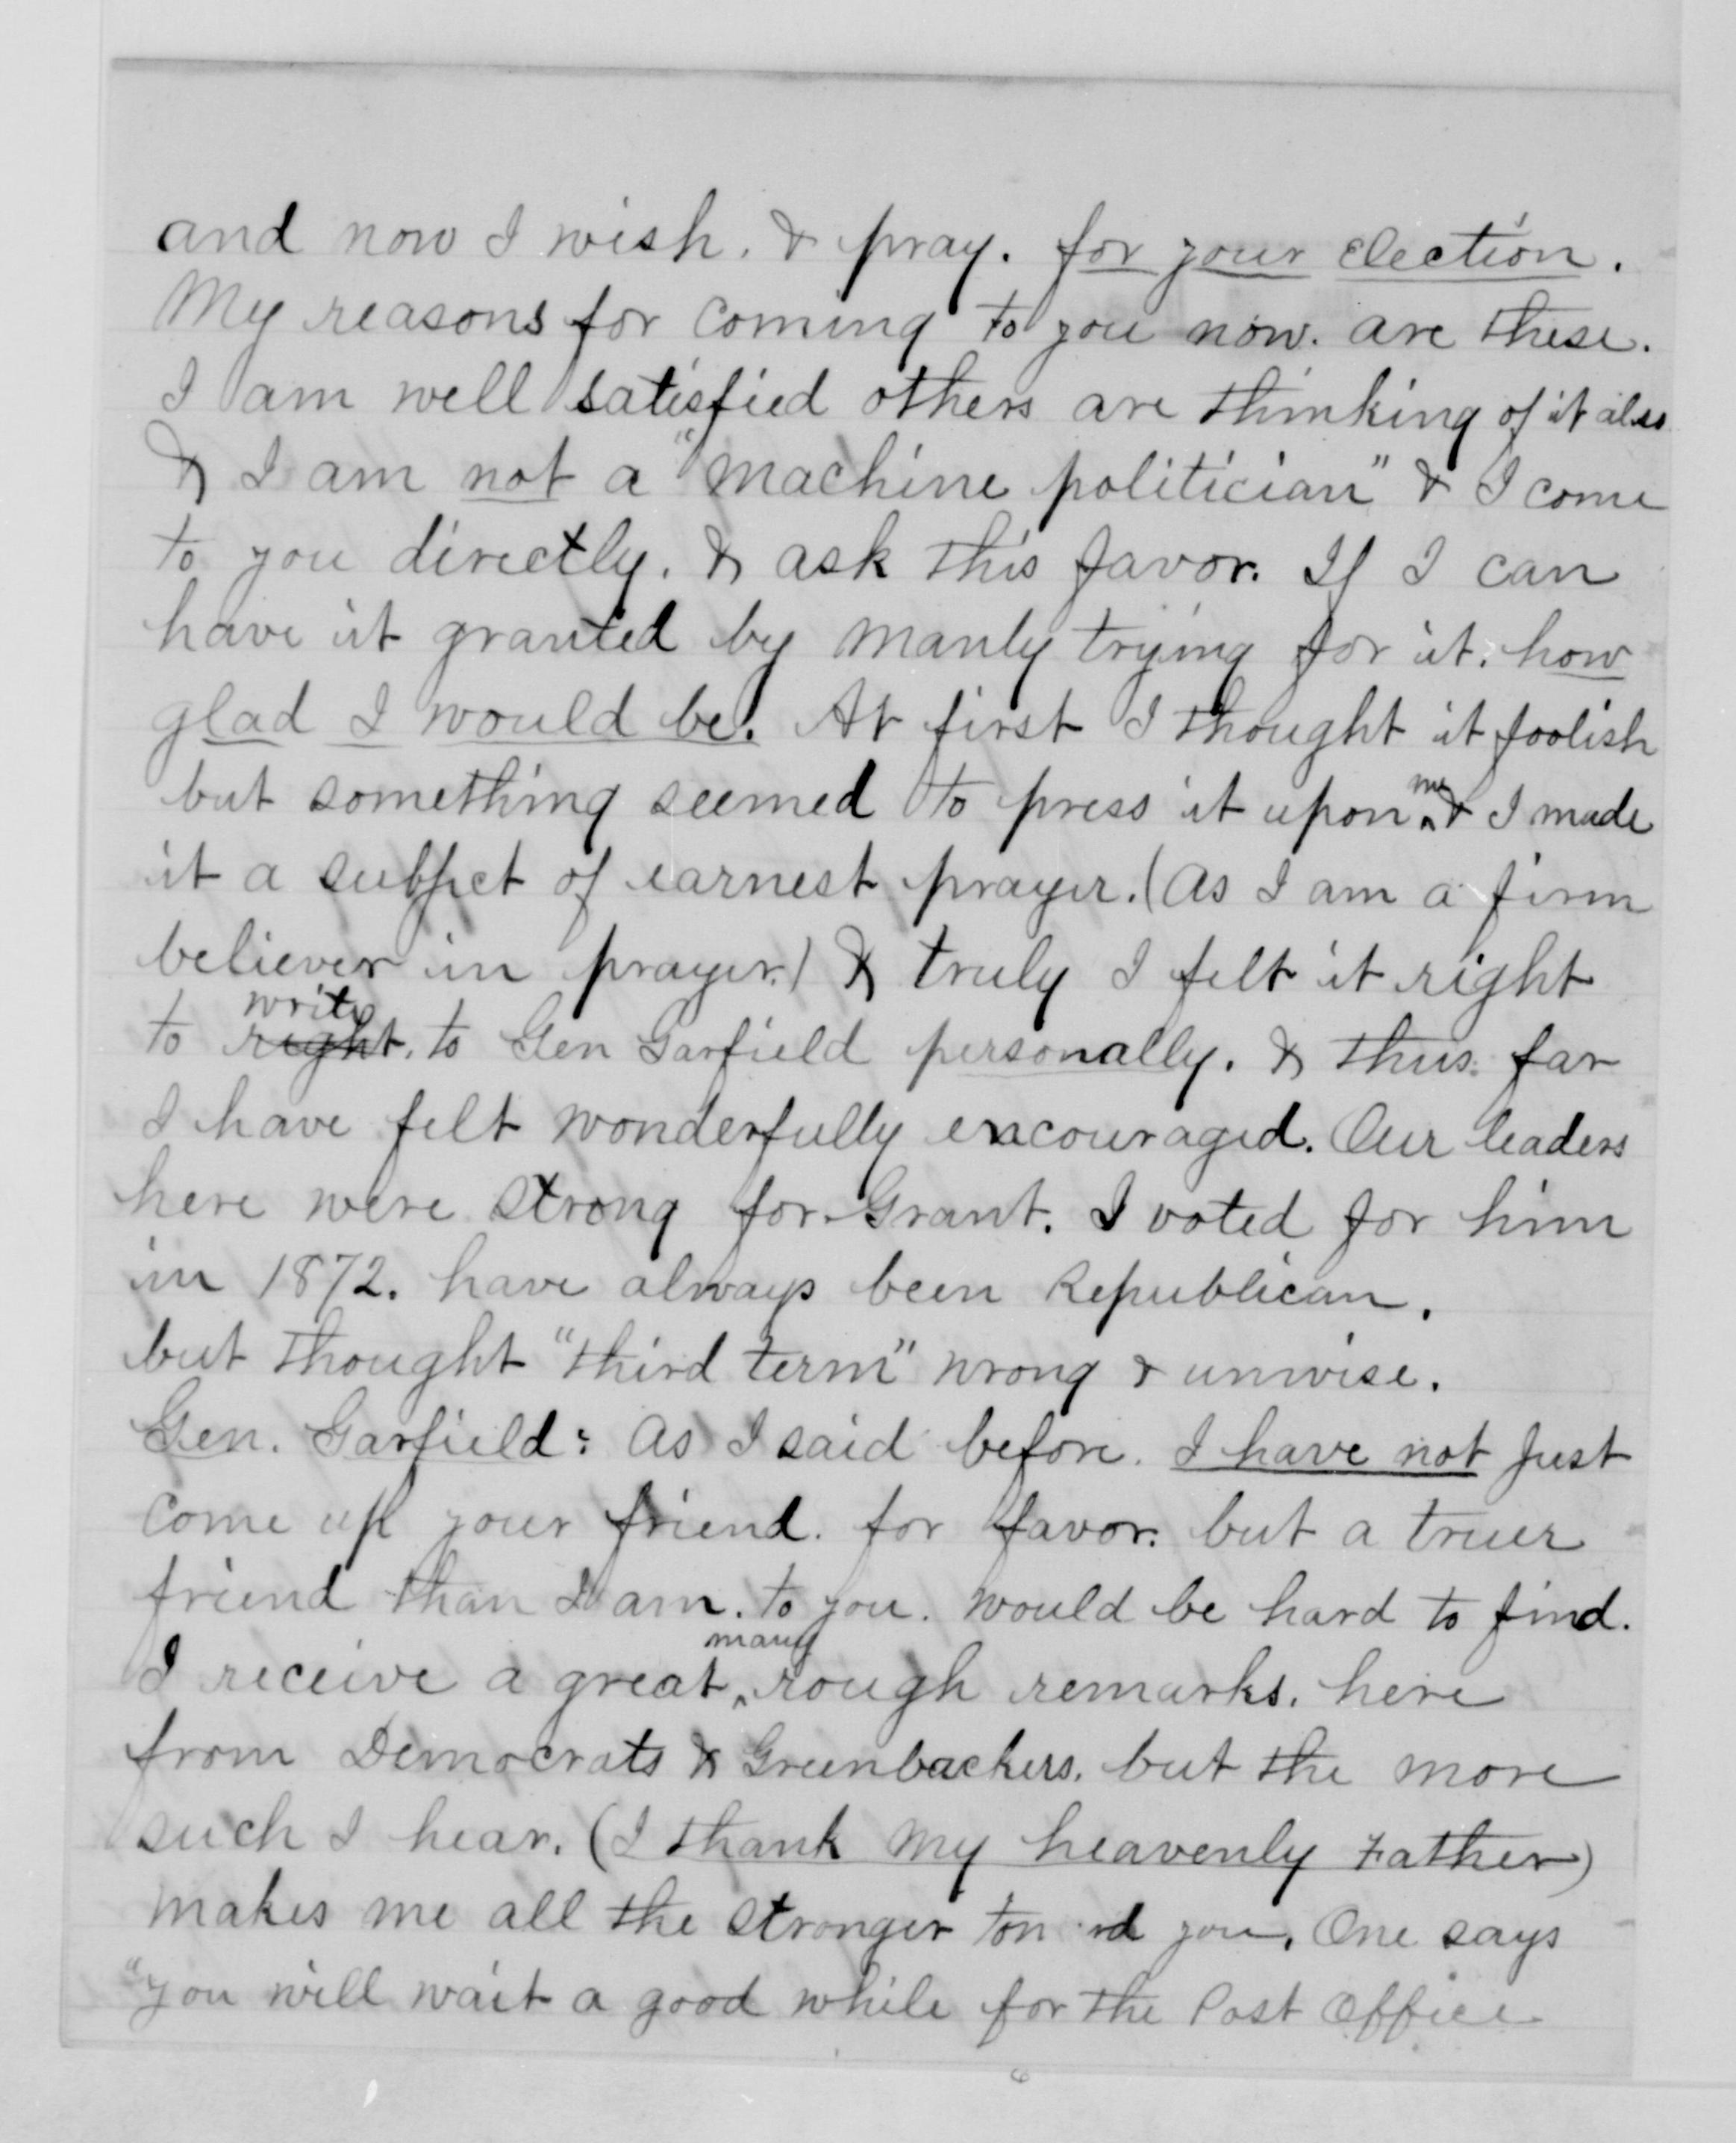 and now I wish. & pray. for your Election.
My reasons for coming to you now. are these.
I am well satisfied others are thinking of it also
& I am not a "machine politician" & I come
to you directly. & ask this favor. If I can
have it granted by manly trying for it. how
glad I would be. At first I thought it foolish
but something seemed to press it upon me & I made
it a subject of earnest prayer. (As I am a firm
believer in prayer.) & truly I felt it right
to right. write to Gen Garfield personally. & thus far
I have felt wonderfully encouraged. Our leaders
here were strong for Grant. I voted for him
in 1872. have always been Republican.
but thought "third term" wrong & unwise.
Gen. Garfield: As I said before. I have not Just
come up your friend. for favor. but a truer
friend than I am. to you. would be hard to find.
I receive a great many rough remarks. here
from Democrats & Greenbackers. but the more
such I hear. (I thank my heavenly Father)
makes me all the stronger toward you. One says
"you will wait a good while for the Post Office